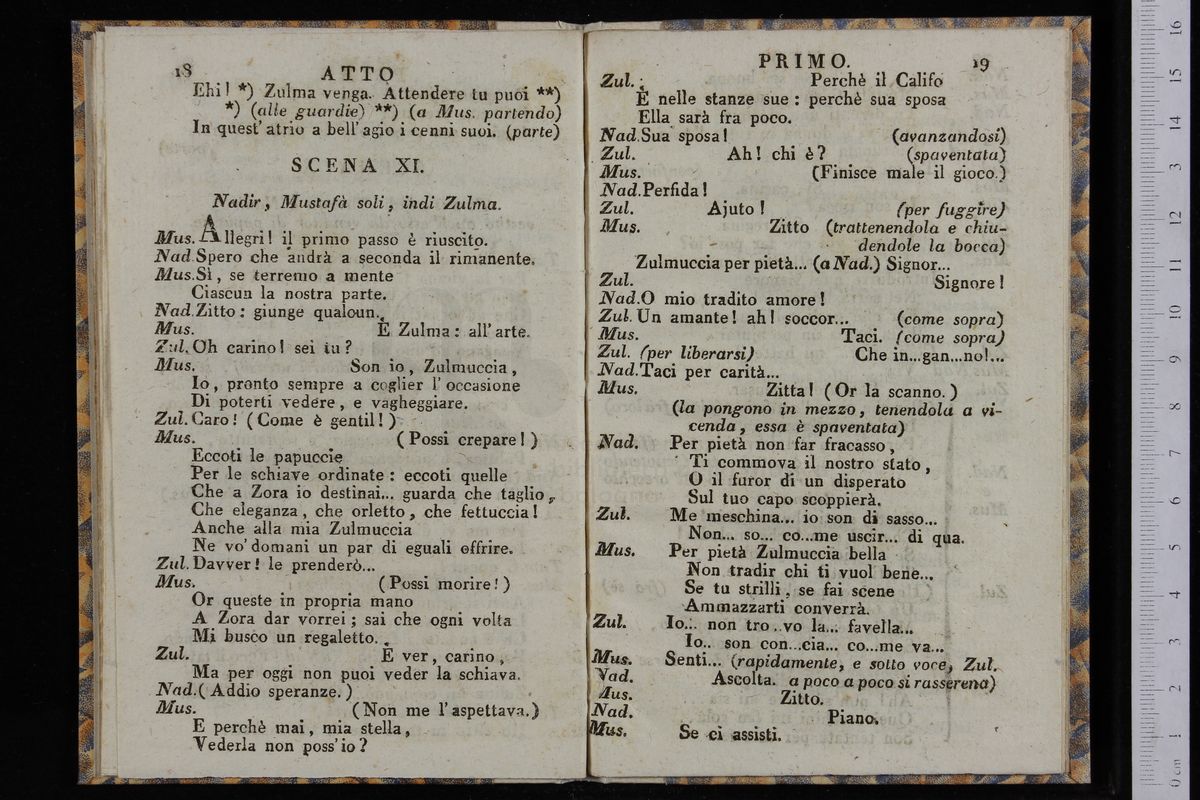 18 ATTO
Ehi! *) Zulma venga. Attendere tu puoi **)
*) (alle guardie) **) (a Mus. partendo)
In quest' atrio a bell' agio i cenni suoi. (parte)
SCENA XI.
Nadir, Mustafà soli, indi Zulma.
Mus. Allegri! il primo passo è riuscito.
Nad. Spero che andrà a seconda il rimanente.
Mus. Sì, se terremo a mente
Ciascun la nostra parte.
Nad. Zitto: giunge qualcun.
Mus. È Zulma: all' arte.
Zul. Oh carino! sei tu?
Mus. Son io, Zulmuccia,
Io, pronto sempre a coglier l' occasione
Di poterti vedere, e vagheggiare.
Zul. Caro! (Come è gentil!)
Mus. (Possi crepare!)
Eccoti le papuccie
Per le schiave ordinate: eccoti quelle
Che a Zora io destinai... guarda che taglio,
Che eleganza, che orletto, che fettuccia!
Anche alla mia Zulmuccia
Ne vo' domani un par di eguali offrire.
Zul. Davver! le prenderò...
Mus. (Possi morire!)
Or queste in propria mano
A Zora dar vorrei; sai che ogni volta
Mi busco un regaletto.
Zul. È ver, carino,
Ma per oggi non puoi veder la schiava.
Nad. (Addio speranze.)
Mus. (Non me l' aspettava.)
E perchè mai, mia stella,
Vederla non poss' io?
PRIMO. 19
Zul. Perchè il Califo
È nelle stanze sue: perchè sua sposa
Ella sarà fra poco.
Nad. Sua sposa! (avanzandosi)
Zul. Ah! chi è? (spaventata)
Mus. (Finisce male il gioco.)
Nad. Perfida!
Zul. Ajuto! (per fuggire)
Mus. Zitto (trattenendola e chiu-
dendole la bocca)
Zulmuccia per pietà... (a Nad.) Signor...
Zul. Signore!
Nad. O mio tradito amore!
Zul. Un amante! ah! soccor... (come sopra)
Mus. Taci. (come sopra)
Zul. (per liberarsi) Che in...gan...no!...
Nad. Taci per carità...
Mus. Zitta! (Or la scanno.)
(la pongono in mezzo, tenendola a vi-
cenda, essa è spaventata)
Nad. Per pietà non far fracasso,
Ti commova il nostro stato,
O il furor di un disperato
Sul tuo capo scoppierà.
Zul. Me meschina... io son di sasso...
Non... so... co...me uscir... di qua.
Mus. Per pietà Zulmuccia bella
Non tradir chi ti vuol bene...
Se tu strilli, se fai scene
Ammazzarti converrà.
Zul. Io... non tro..vo la... favella...
Io.. son con...cia... co...me va...
Mus. Senti... (rapidamente, e sotto voce, Zul.
Nad. Ascolta. a poco a poco si rasserena)
Mus. Zitto.
Nad. Piano.
Mus. Se ci assisti.